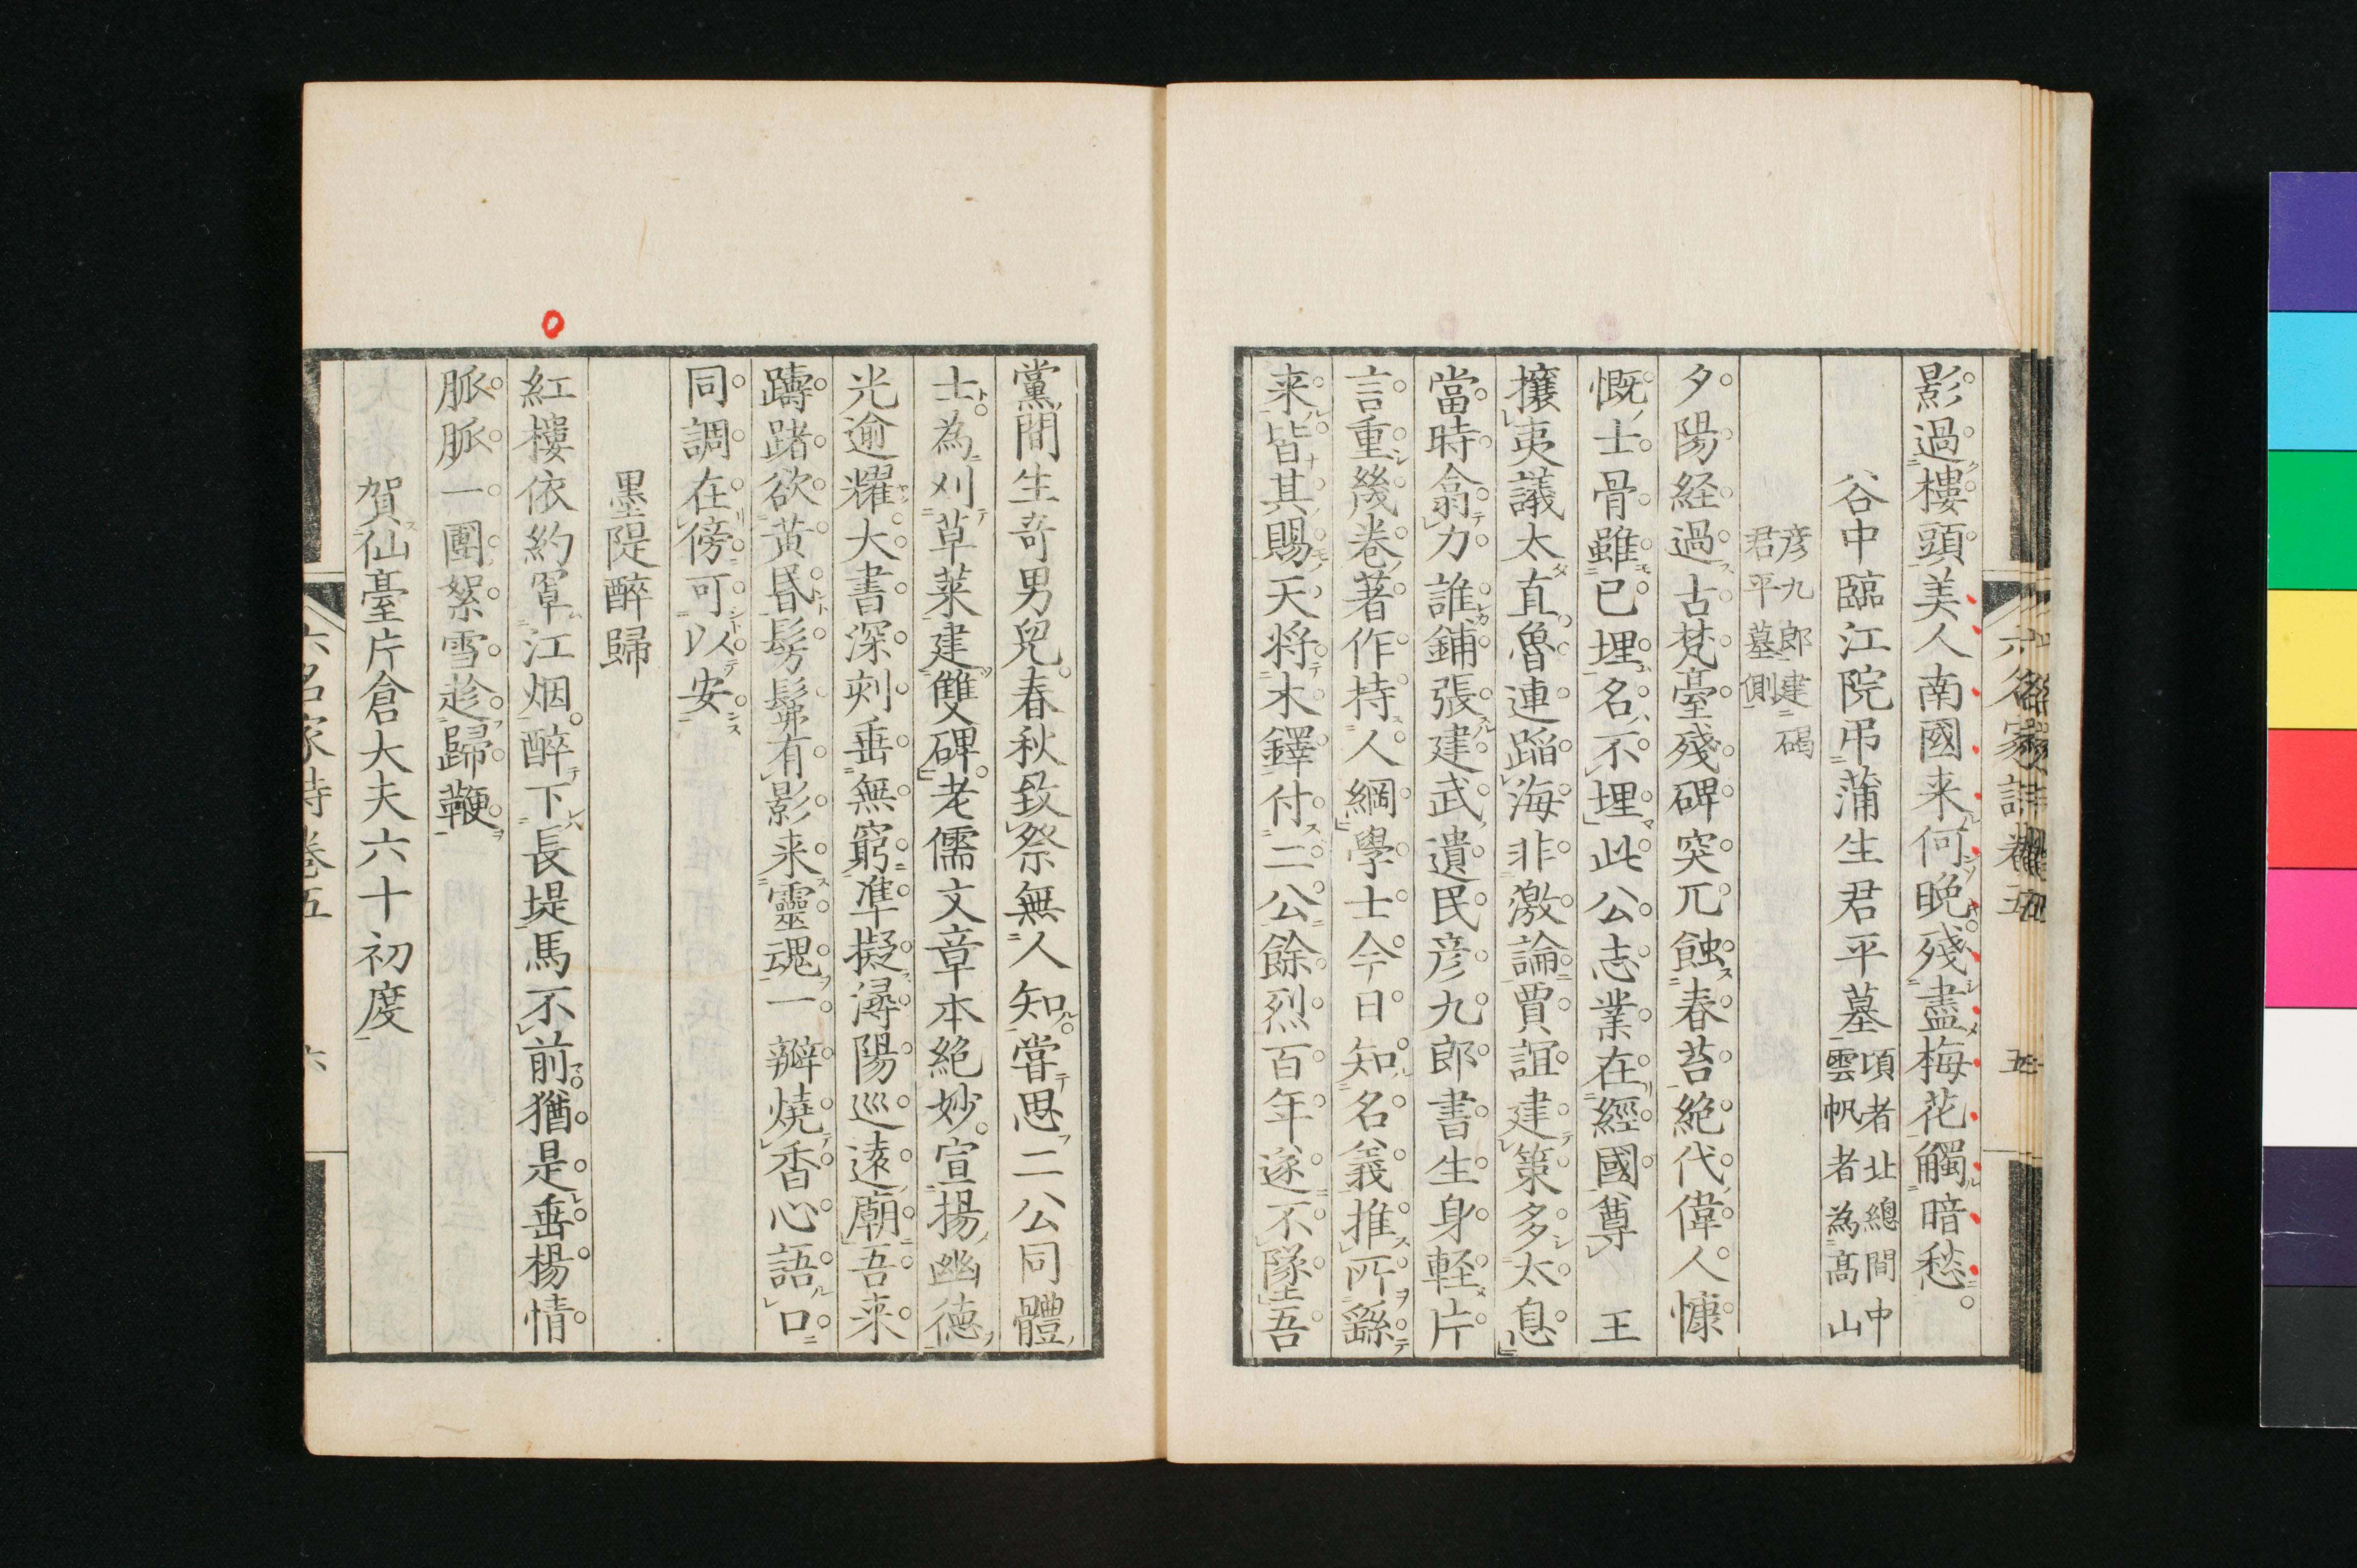 影過樓頭美人南國来何晩残盡梅花觸暗愁
谷中臨江院弔蒲生君平墓
頃者北總間中
雲帆者為髙山
彦九郎建碣
君平墓側
夕陽経過古梵臺殘碑突兀蝕春苔絶代偉人慷
慨士骨雖已埋名不埋此公志業在經國尊 王
攘夷議太直魯連蹈海非激論賈誼建策多太息
當時翕力誰鋪張建武遺民彦九郎書生身軽片
言重幾卷著作持人綱學士今日知名義推所繇
来皆其賜天将木鐸付二公餘烈百年遂不墜吾
黨間生奇男兒春秋致祭無人知嘗思二公同體
士為刈草莱建雙碑老儒文章本絶妙宣揚幽德
光逾耀大書深刻垂無窮準擬潯陽巡遠廟吾来
躊躇欲黄昏髣髴有影来靈魂一瓣燒香心語口
同調在傍可以安
墨隄醉歸
紅樓依約罩江烟醉下長堤馬不前猶是垂楊情
脈脈一團絮雪趁歸鞭
賀仙臺片倉大夫六十初度
六名家詩卷五 六